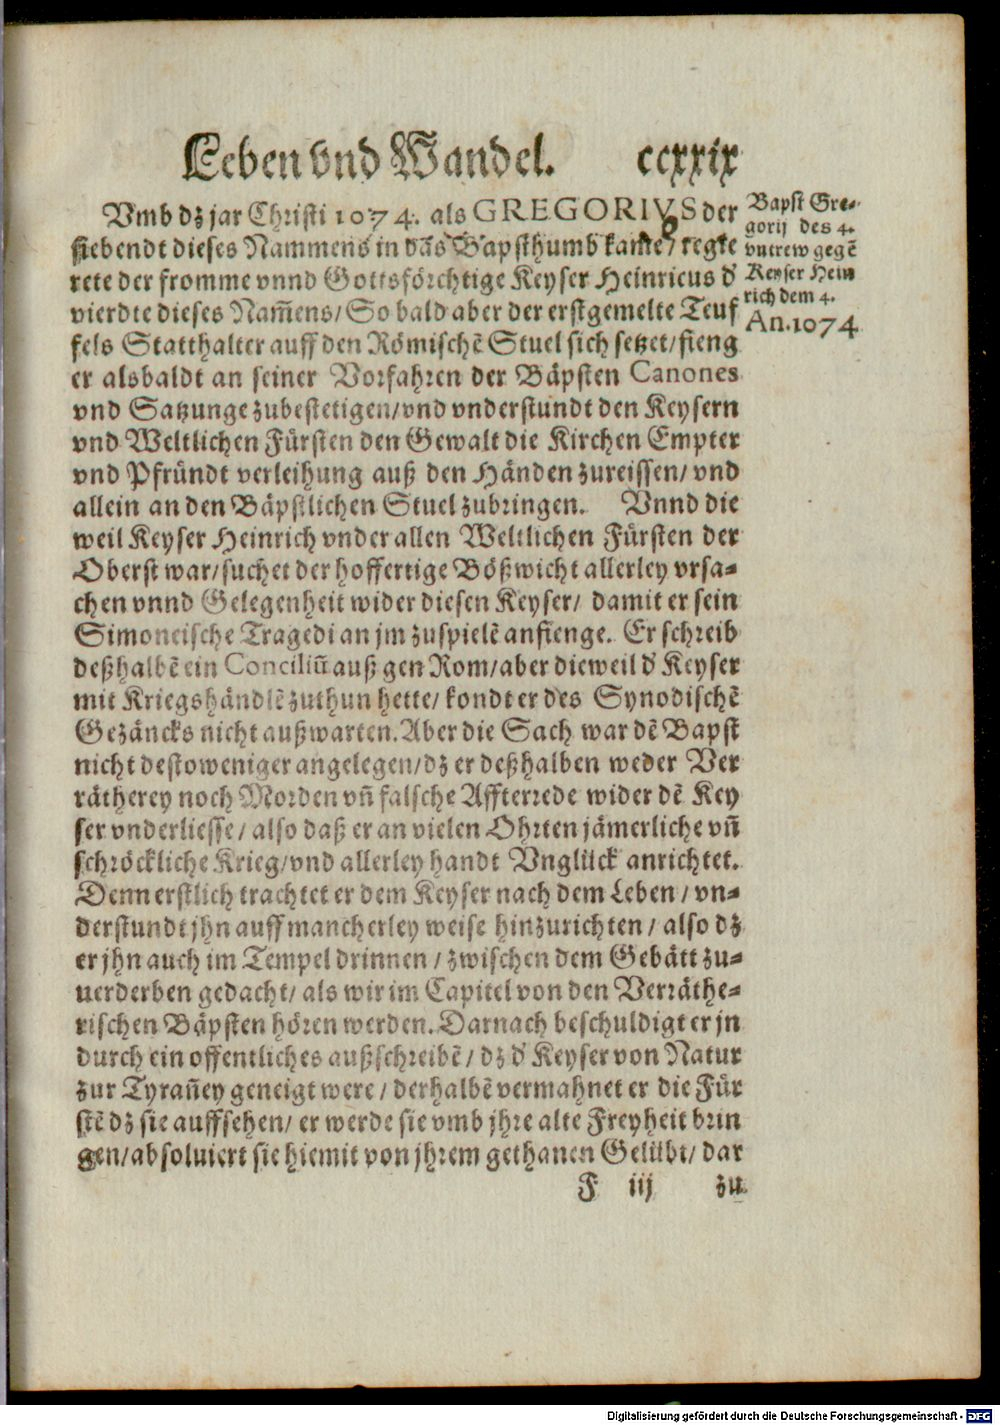 Leben vnd Wandel. ccxxix
Vmb dz jar Christi 1074. als GREGORIVS der
siebendt dieses Nammens in das Bapsthumb kame/ regte
rete der fromme vnnd Gottsförchtige Keyser Heinricus d'
vierdte dieses Nam̃ens/ So bald aber der erstgemelte Teuf
fels Statthalter auff den Römischẽ Stuel sich setzet/ fieng
er alsbaldt an seiner Vorfahren der Bäpsten Canones
vnd Satzunge zubestetigen/ vnd vnderstundt den Keysern
vnd Weltlichen Fürsten den Gewalt die Kirchen Empter
vnd Pfründt verleihung auß den Händen zureissen/ vnd
allein an den Bäpstlichen Stuel zubringen. Vnnd die
weil Keyser Heinrich vnder allen Weltlichen Fürsten der
Oberst war/ suchet der hoffertige Bößwicht allerley vrsa-
chen vnnd Gelegenheit wider diesen Keyser/ damit er sein
Simoneische Tragedi an jm zuspielẽ anfienge. Er schreib
deßhalbẽ ein Conciliũ auß gen Rom/ aber dieweil d' Keyser
mit Kriegshändlẽ zuthun hette/ kondt er des Synodischẽ
Gezäncks nicht außwarten. Aber die Sach war dẽ Bapst
nicht destoweniger angelegen/ dz er deßhalben weder Ver
rätherey noch Morden vñ falsche Affterrede wider dẽ Key
ser vnderliesse/ also daß er an vielen Ohrten jämerliche vñ
schröckliche Krieg/ vnd allerley handt Vnglück anrichtet.
Denn erstlich trachtet er dem Keyser nach dem Leben/ vn-
derstundt jhn auff mancherley weise hinzurichten/ also dz
er jhn auch im Tempel drinnen/ zwischen dem Gebätt zu-
uerderben gedacht/ als wir im Capitel von den Verräthe-
rischen Bäpsten hören werden. Darnach beschuldigt er jn
durch ein offentliches außschreibẽ/ dz d' Keyser von Natur
zur Tyrañey geneigt were/ derhalbẽ vermahnet er die Für
stẽ dz sie auffsehen/ er werde sie vmb jhre alte Freyheit brin
gen/ absoluiert sie hiemit von jhrem gethanen Gelübt/ dar
F iij zu
Bapst Gre-
gorij des 4.
vntrew gegẽ
Keyser Hein
rich dem 4.
An. 1074
Digitalisierung gefördert durch die Deutsche Forschungsgemeinschaft - DFG